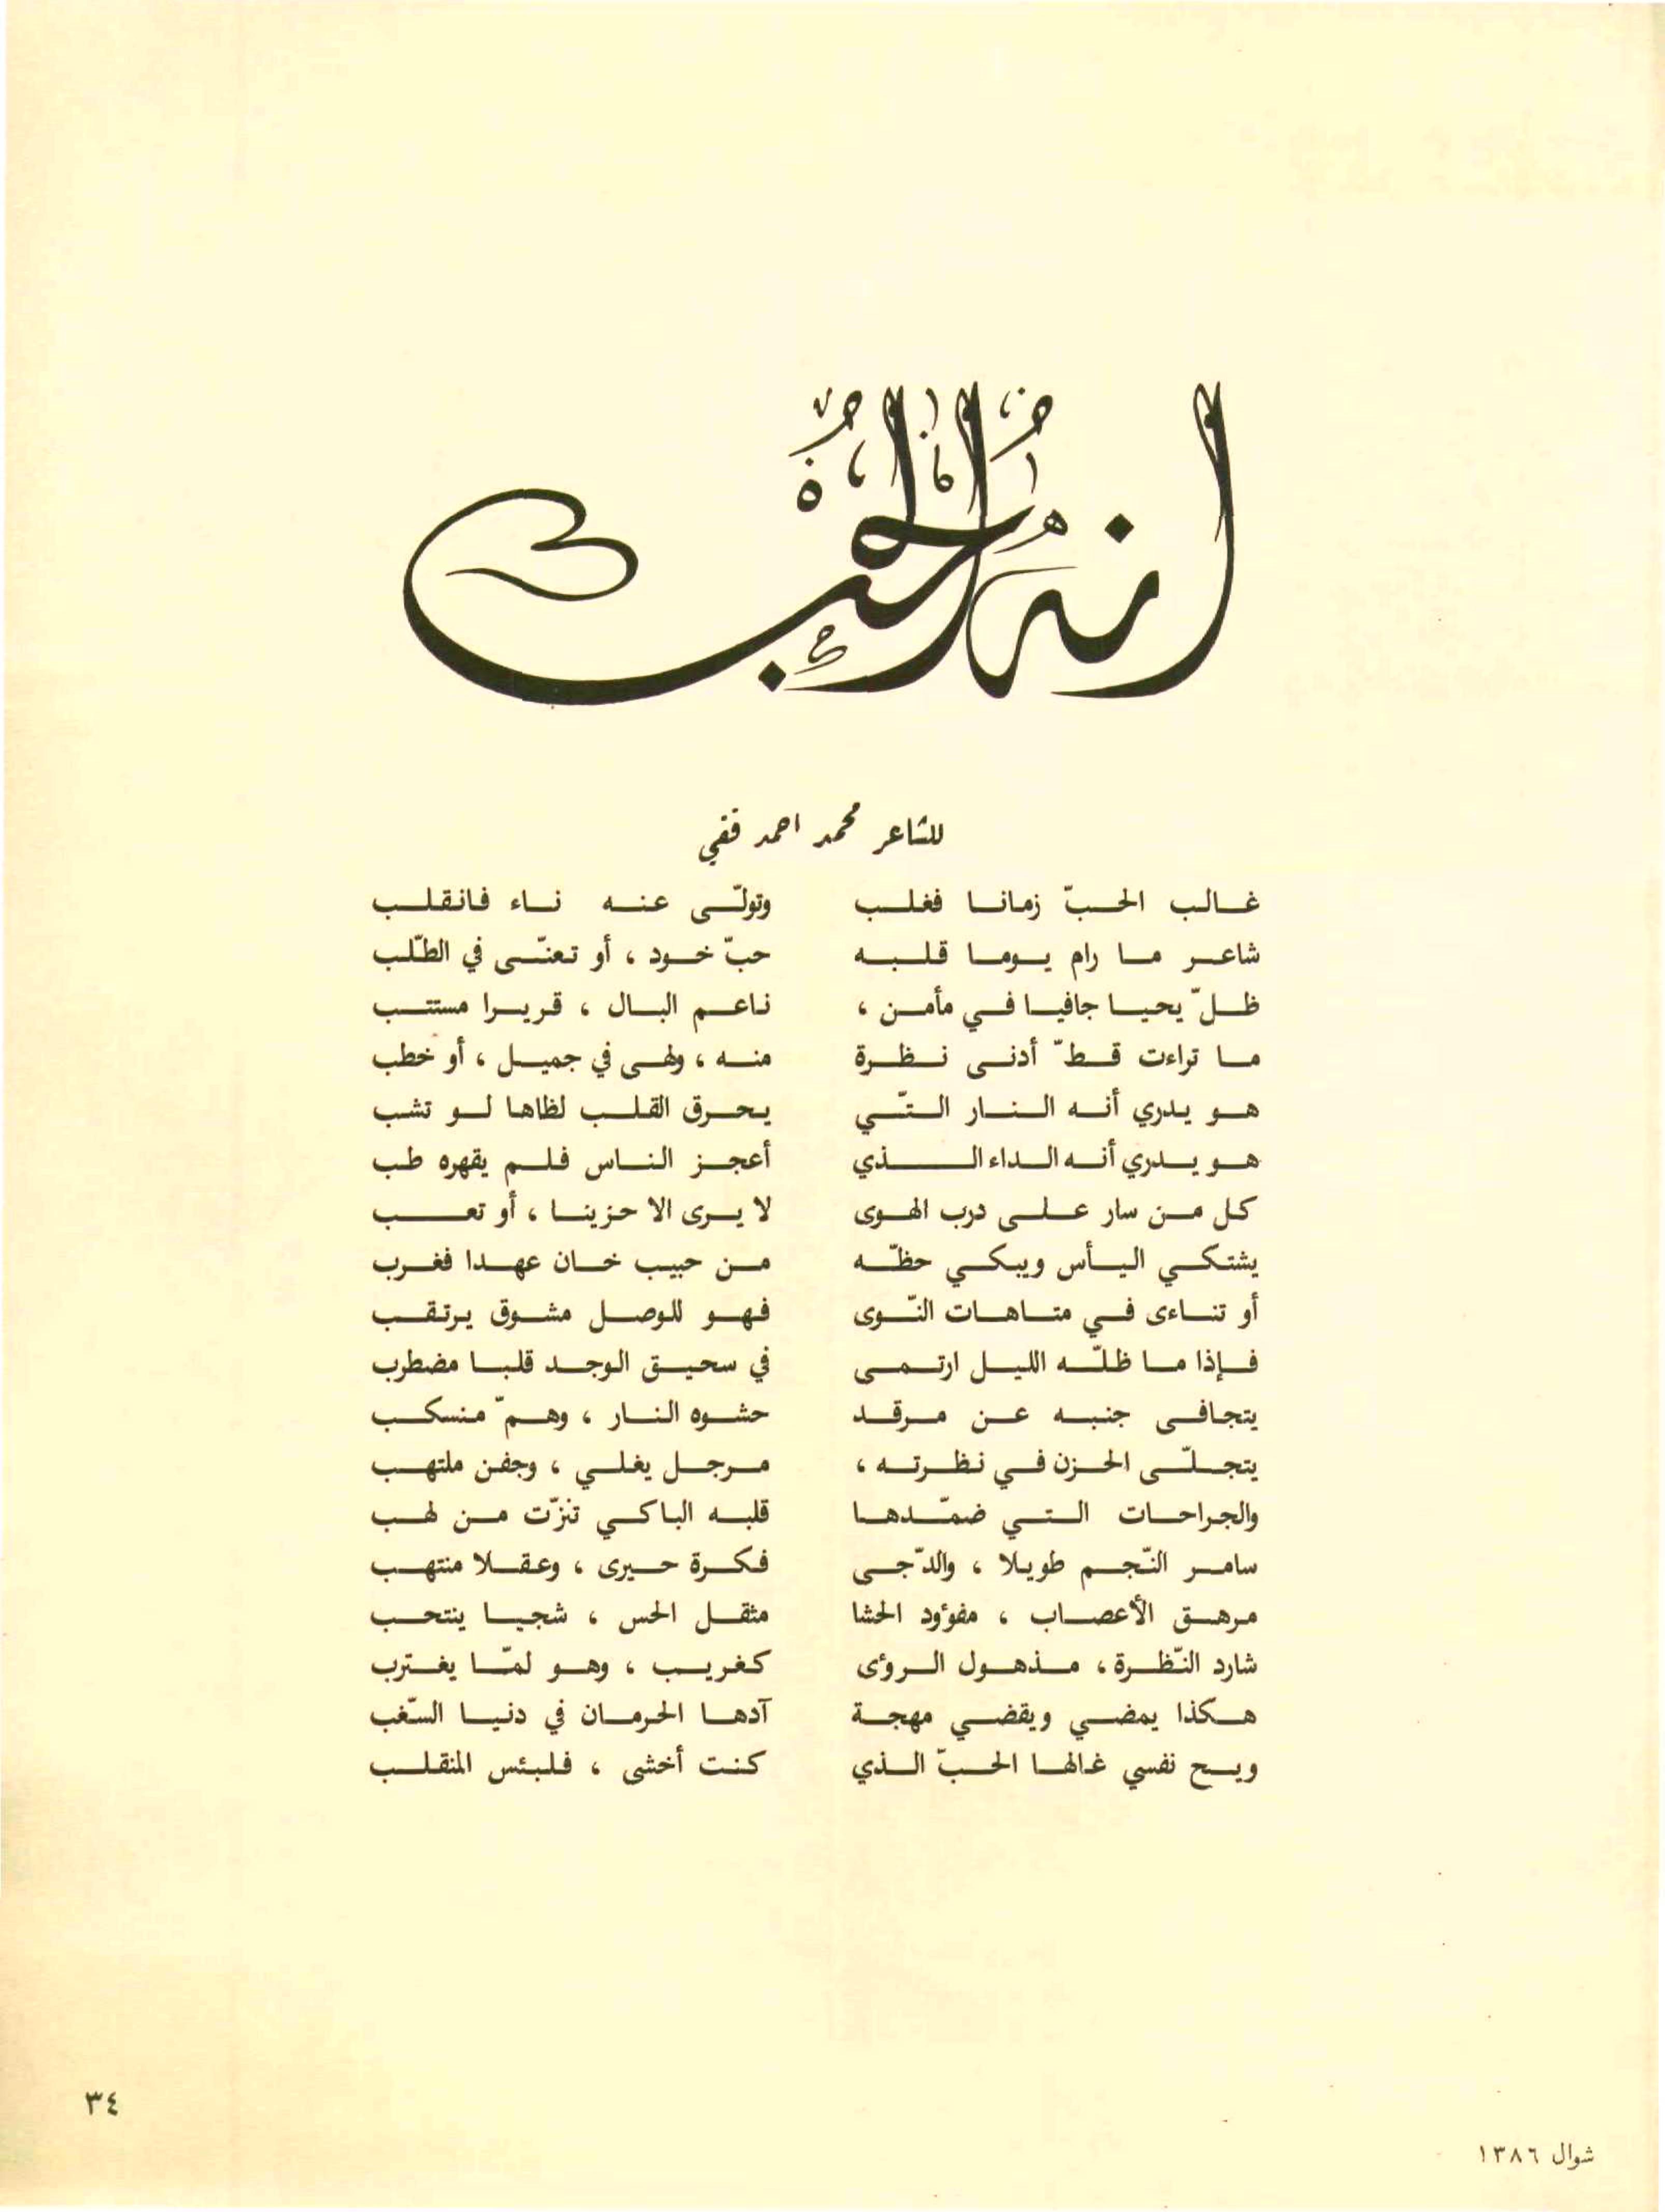 انه الحب
للشاعر محمد احمد فقي
غالب الحبّ زمانا فغلب وتولّى عنه ناء فانقلب
شاعر ما رام يوما قلبه حبّ خود ، أو تعنّى في الطّلب
ظلّ يحيا جافيا في مأمن ، ناعم البال ، قريرا مستتب
ما تراءت قطّ أدنى نظرة منه ، ولهى في جميل ، أو خطب
هو يدري أنه النار التّي يحرق القلب لظاها لو تشب
هو يدري أنه الداء الذي أعجز الناس فلم يقهره طب
كل من سار على درب الهوى لا يرى الا حزينا ، أو تعب
يشتكي اليأس ويبكي حظّه من حبيب خان عهدا فغرب
أو تناءى في متاهات النّوى فهو للوصل مشوق يرتقب
فإذا ما ظلّه الليل ارتمى في سحيق الوجد قلبا مضطرب
يتجافى جنبه عن مرقد حشوه النار ، وهمّ منسكب
يتجلّى الحزن في نظرته ، مرجل يغلي ، وجفن ملتهب
والجراحات التي ضمّدها قلبه الباكي تنزّت من لهب
سامر النّجم طويلا ، والدّجى فكرة حيرى ، وعقلا منتهب
مرهق الأعصاب ، مفؤود الحشا مثقل الحس ، شجيا ينتحب
شارد النّظرة ، مذهول الرؤى كغريب ، وهو لمّا يغترب
هكذا يمضي ويقضي مهجة آدها الحرمان في دنيا السّغب
ويح نفسي غالها الحبّ الذي كنت أخشى ، فلبئس المنقلب
٣٤
شوال ١٣٨٦